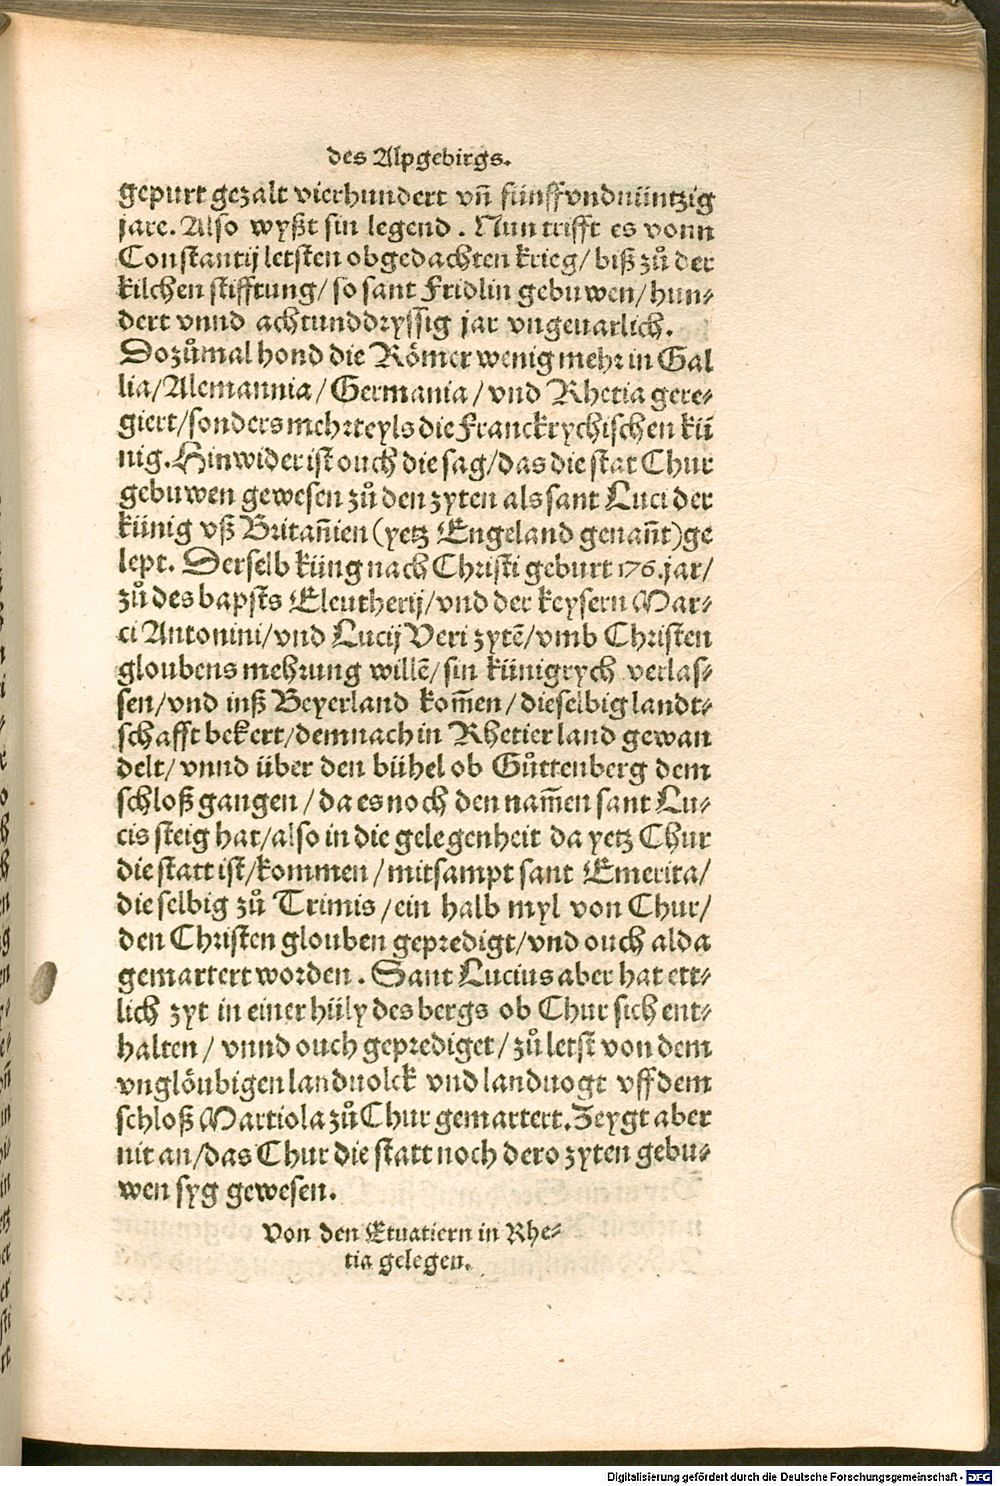 des Alpgebirgs.
gepurt gezalt vierhundert vñ fünffvndnüntzig
jare. Also wyßt sin legend. Nun trifft es vonn
Constantij letsten obgedachten krieg/ biß zů der
kilchen stifftung/ so sant Fridlin gebuwen/ hun-
dert vnnd achtunddryssig jar vngeuarlich.
Dozůmal hond die Römer wenig mehr in Gal
lia/ Alemannia/ Germania/ vnd Rhetia gere-
giert/ sonders mehrteyls die Franckrychischen kü
nig. Hinwider ist ouch die sag/ das die stat Chur
gebuwen gewesen zů den zyten als sant Luci der
künig vß Britañien (yetz Engeland genañt) ge
lept. Derselb küng nach Christi geburt 176. jar/
zů des bapsts Eleutherij/ vnd der keysern Mar-
ci Antonini/ vnd Lucij Veri zytē/ vmb Christen
gloubens mehrung willē/ sin künigrych verlas-
sen/ vnd inß Beyerland kom̄en/ dieselbig landt-
schafft bekert/ demnach in Rhetier land gewan
delt/ vnnd über den bühel ob Gůttenberg dem
schloß gangen/ da es noch den nam̄en sant Lu-
cis steig hat/ also in die gelegenheit da yetz Chur
die statt ist/ kommen/ mitsampt sant Emerita/
die selbig zů Trimis/ ein halb myl von Chur/
den Christen glouben gepredigt/ vnd ouch alda
gemartert worden. Sant Lucius aber hat ett-
lich zyt in einer hüly des bergs ob Chur sich ent-
halten/ vnnd ouch geprediget/ zů letst von dem
vnglöubigen landuolck vnd landuogt vff dem
schloß Martiola zů Chur gemartert. Zeygt aber
nit an/ das Chur die statt noch dero zyten gebu-
wen syg gewesen.
Von den Etuatiern in Rhe-
tia gelegen.
Digitalisierung gefördert durch die Deutsche Forschungsgemeinschaft - DFG